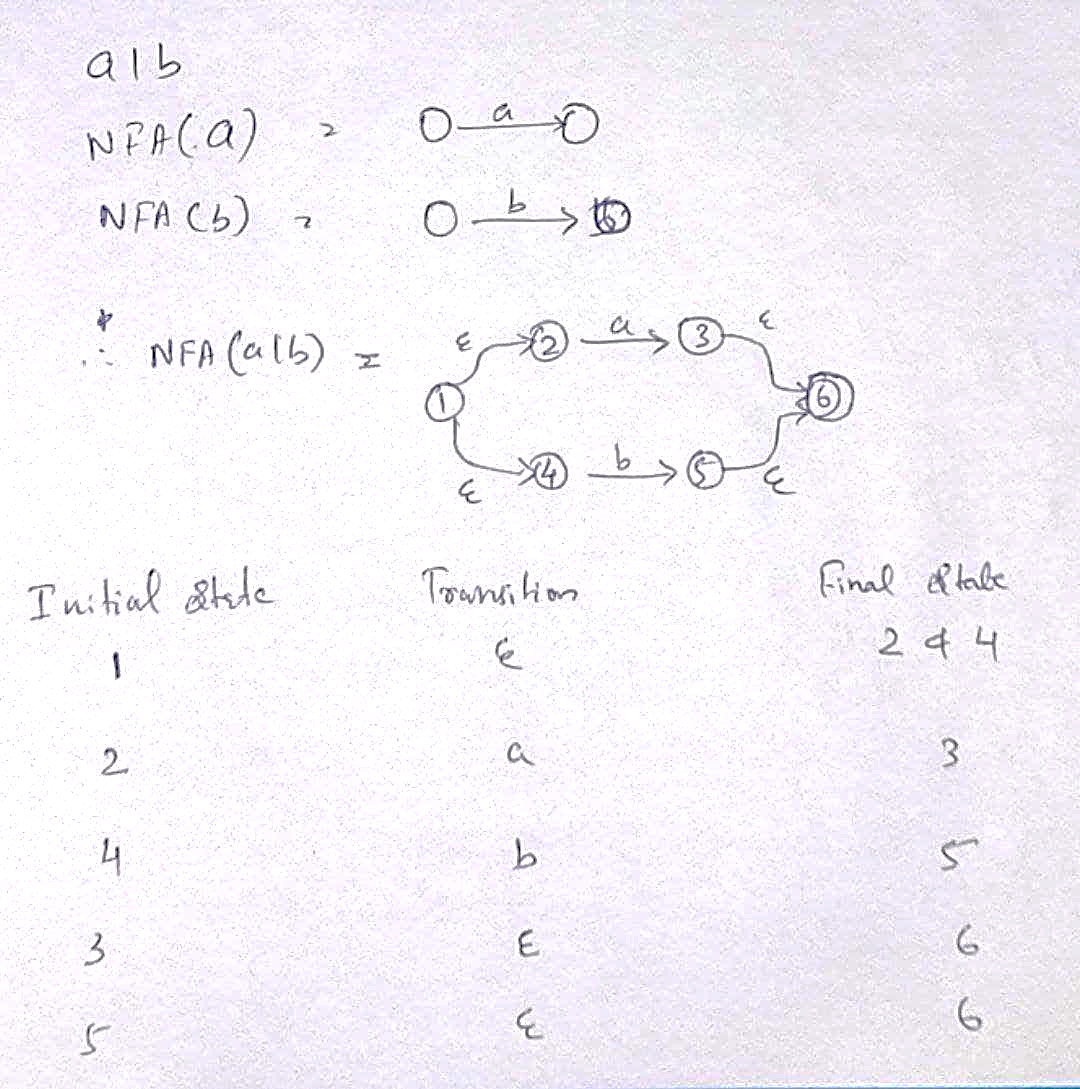 a|b
NFA(a) = a
NFA(b) = b
∴ NFA(a|b) =
ε 2 a 3 ε
1 6
ε 4 b 5 ε
Initial State Transition Final State
1 ε 2 & 4
2 a 3
4 b 5
3 ε 6
5 ε 6